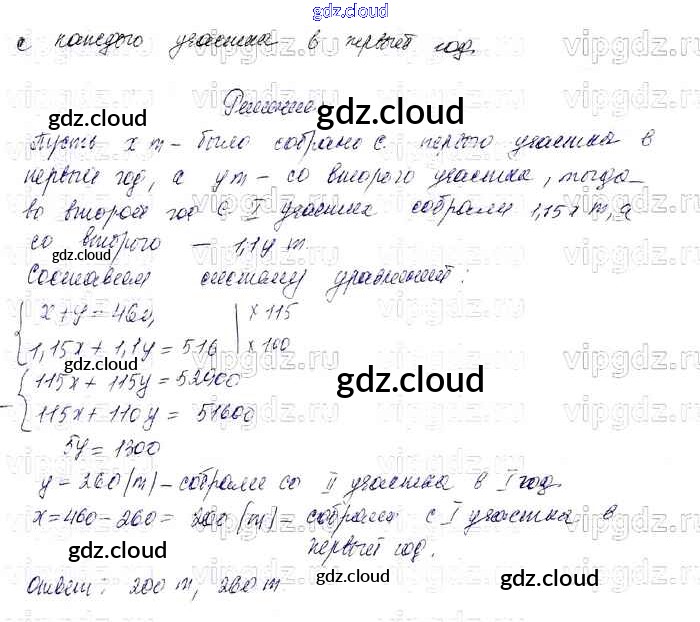 gdz.cloud
с каждого участка в первый год.
Решение
gdz.cloud
Пусть x т – было собрано с первого участка в
первый год, а y т – со второго участка, тогда
во второй год с I участка собрали 1,15x т, а
со второго – 1,1y т.
gdz.cloud
Составим систему уравнений:
x+y=460, | ×115
1,15x+1,1y=516 | ×100
gdz.cloud
115x+115y=52900
gdz.cloud
115x+110y=51600
5y=1300
y=260(т) – собрали со II участка в I год.
x=460-260=200(т) – собрали с I участка в
первый год.
gdz.cloud
Ответ: 200 т, 260 т.
gdz.cloud
gdz.cloud